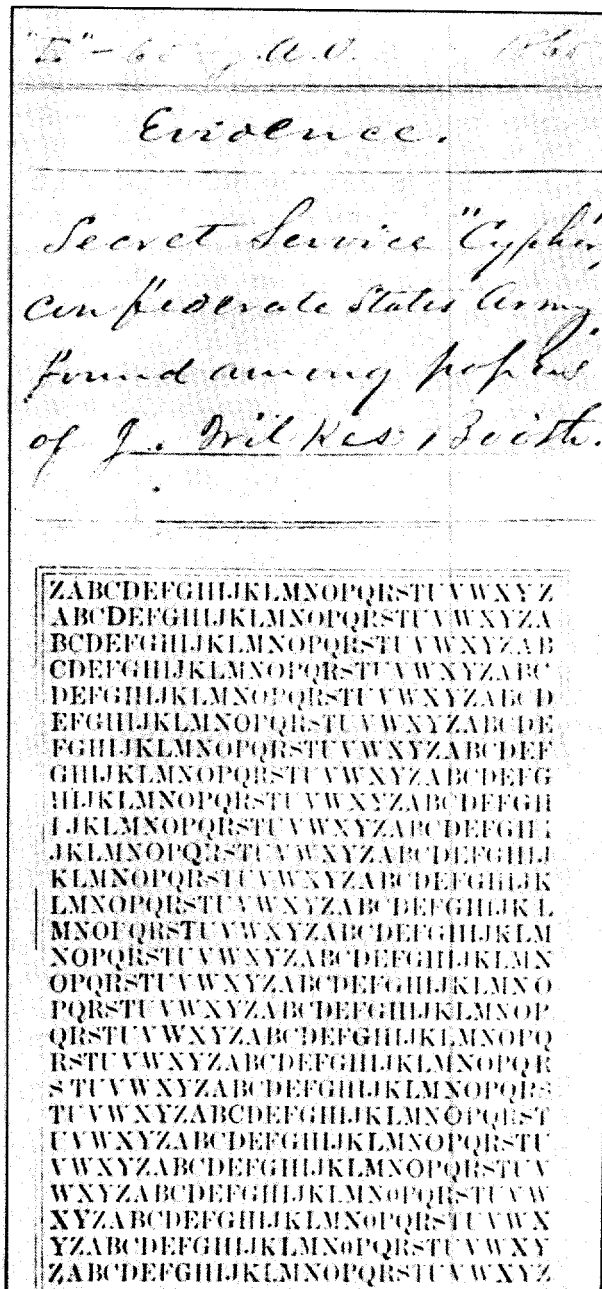 1865
Evidence.
Secret Service "Cypher"
Confederate States Army
found among papers
of J. Wilkes Booth.
ZABCDEFGHIJKLMNOPQRSTUVWXYZ
ABCDEFGHIJKLMNOPQRSTUVWXYZA
BCDEFGHIJKLMNOPQRSTUVWXYZAB
CDEFGHIJKLMNOPQRSTUVWXYZABC
DEFGHIJKLMNOPQRSTUVWXYZABCD
EFGHIJKLMNOPQRSTUVWXYZABCDE
FGHIJKLMNOPQRSTUVWXYZABCDEF
GHIJKLMNOPQRSTUVWXYZABCDEFG
HIJKLMNOPQRSTUVWXYZABCDEFGH
IJKLMNOPQRSTUVWXYZABCDEFGHI
JKLMNOPQRSTUVWXYZABCDEFGHIJ
KLMNOPQRSTUVWXYZABCDEFGHIJK
LMNOPQRSTUVWXYZABCDEFGHIJKL
MNOPQRSTUVWXYZABCDEFGHIJKLM
NOPQRSTUVWXYZABCDEFGHIJKLMN
OPQRSTUVWXYZABCDEFGHIJKLMNO
PQRSTUVWXYZABCDEFGHIJKLMNOP
QRSTUVWXYZABCDEFGHIJKLMNOPQ
RSTUVWXYZABCDEFGHIJKLMNOPQR
STUVWXYZABCDEFGHIJKLMNOPQRS
TUVWXYZABCDEFGHIJKLMNOPQRST
UVWXYZABCDEFGHIJKLMNOPQRSTU
VWXYZABCDEFGHIJKLMNOPQRSTUV
WXYZABCDEFGHIJKLMNOPQRSTUVW
XYZABCDEFGHIJKLMNOPQRSTUVWX
YZABCDEFGHIJKLMNOPQRSTUVWXY
ZABCDEFGHIJKLMNOPQRSTUVWXYZ